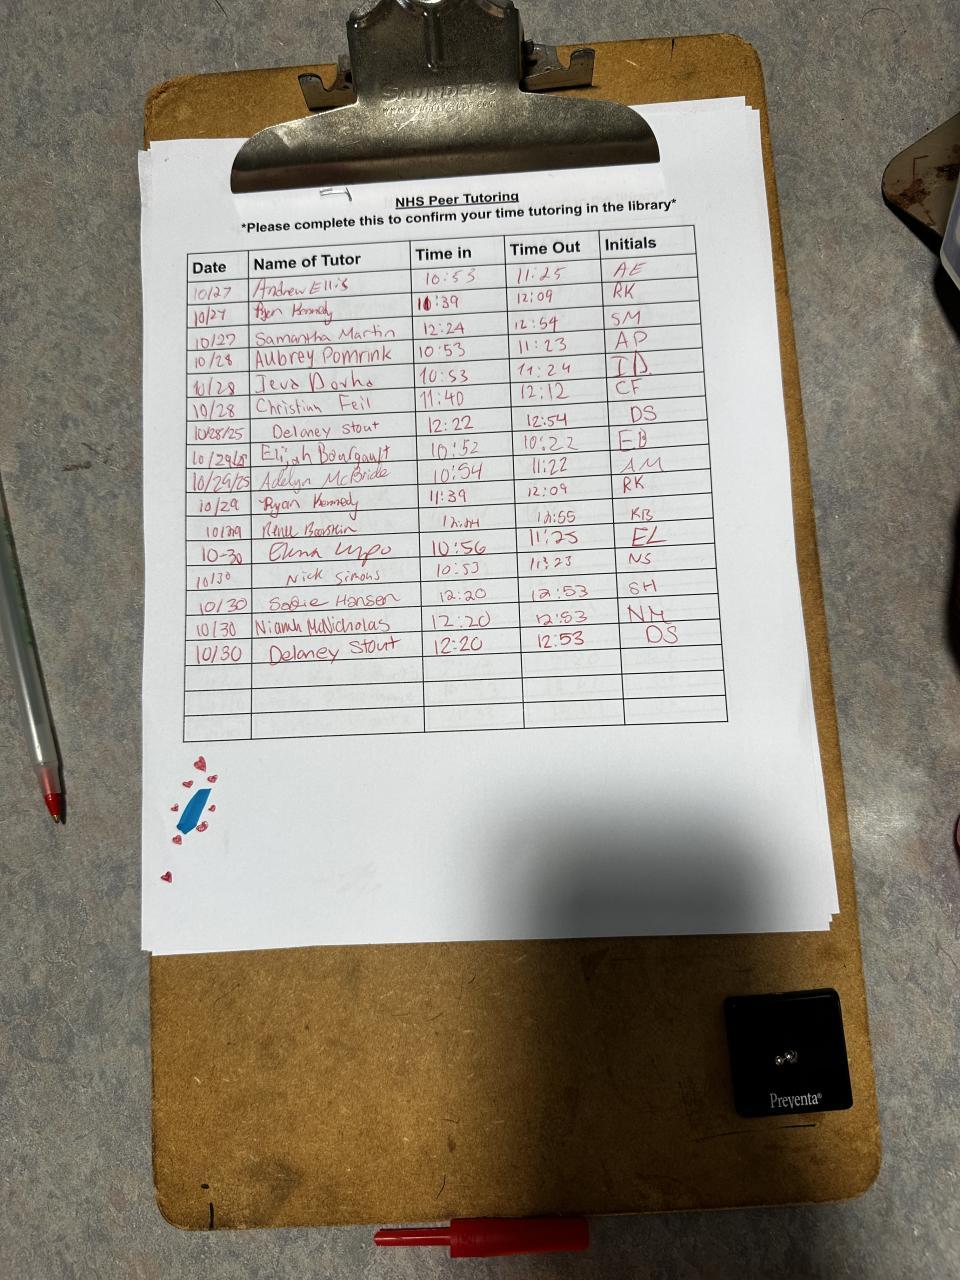 SAUNDERS
NHS Peer Tutoring
*Please complete this to confirm your time tutoring in the library*
Date Name of Tutor Time in Time Out Initials
10/27 Andrew Ellis 10:53 11:25 AE
10/27 Ryan Kennedy 11:39 12:09 RK
10/27 Samantha Martin 12:24 12:54 SM
10/28 Aubrey Pomrink 10:53 11:23 AP
10/28 Ieva 10:53 11:24 ID
10/28 Christian Feil 11:40 12:12 CF
10/28/25 Delaney Stout 12:22 12:54 DS
10/29/25 Elijah Bourgault 10:52 10:22 EB
10/29/25 Adelyn McBride 10:54 11:22 AM
10/29 Ryan Kennedy 11:39 12:09 RK
10/29 12:55
10-30 Elena Lupo 10:56 11:25 EL
10/30 Nick Simons 10:53 11:23 NS
10/30 Sadie Hansen 12:20 12:53 SH
10/30 Niamh McNicholas 12:20 12:53 NM
10/30 Delaney Stout 12:20 12:53 DS
Preventa®